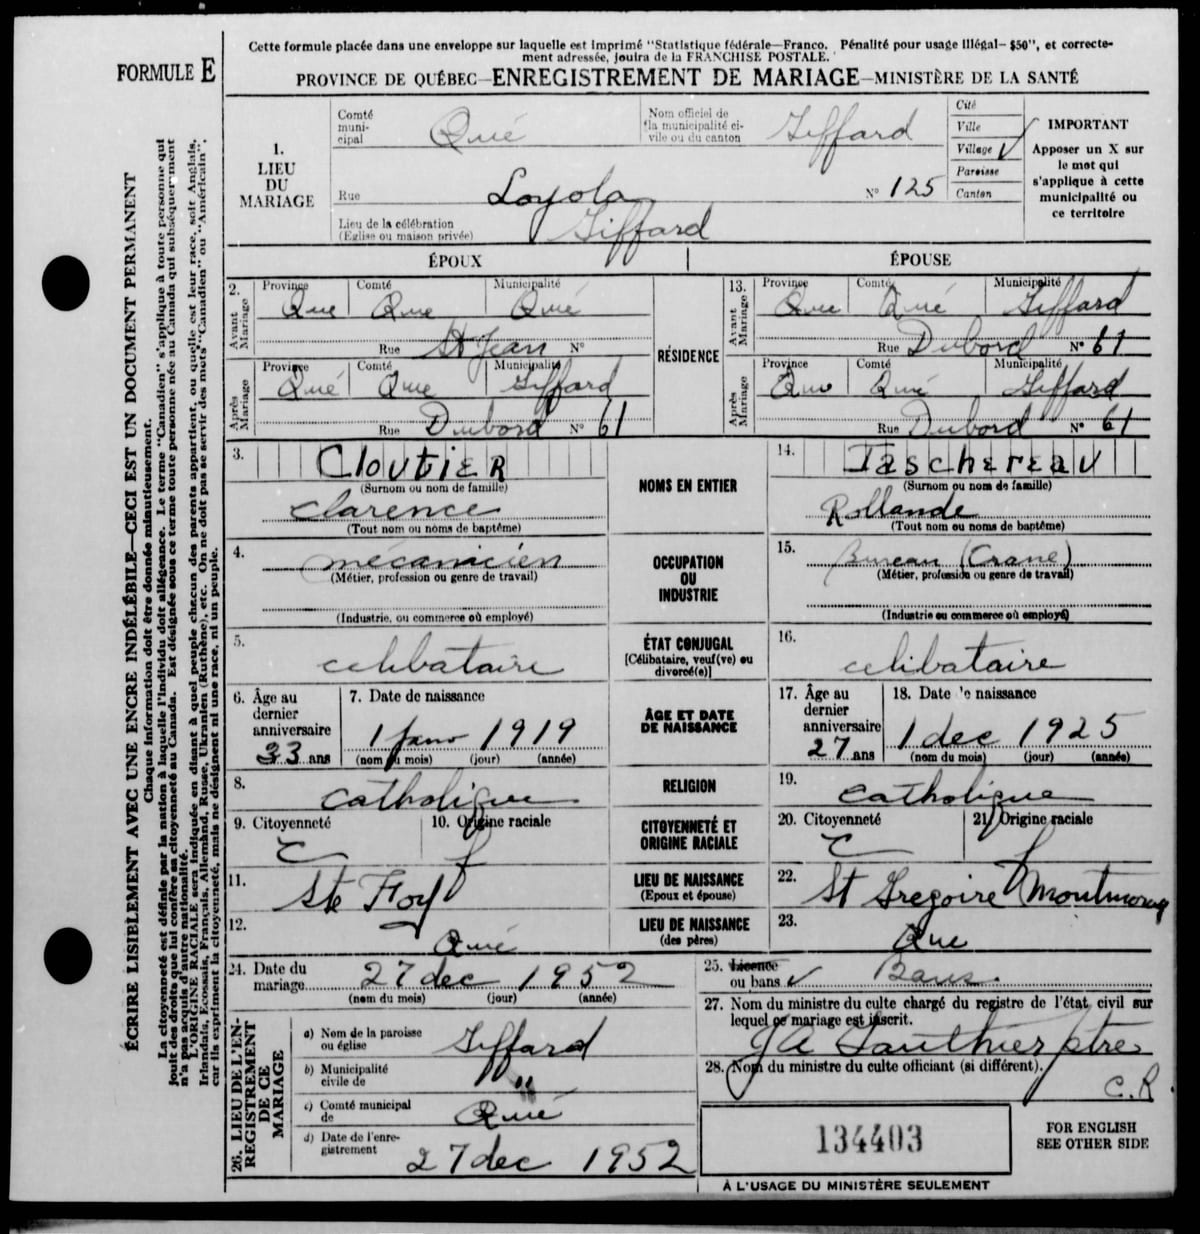 Cette formule placée dans une enveloppe sur laquelle est imprimé "Statistique fédérale—Franco. Pénalité pour usage illégal- $50", et correcte-
ment adressée, jouira de la FRANCHISE POSTALE.
FORMULE E
PROVINCE DE QUÉBEC—ENREGISTREMENT DE MARIAGE—MINISTÈRE DE LA SANTÉ
ÉCRIRE LISIBLEMENT AVEC UNE ENCRE INDÉLÉBILE—CECI EST UN DOCUMENT PERMANENT
Chaque information doit être donnée minutieusement.
La citoyenneté est définie par la nation à laquelle l'individu doit allégeance. Le terme "Canadien" s'applique à toute personne qui
jouit des droits que lui confère sa citoyenneté au Canada. Est désignée sous ce terme toute personne née au Canada qui subséquemment
n'a pas acquis d'autre nationalité.
L'ORIGINE RACIALE sera indiquée en disant à quel peuple chacun des parents appartient, ou quelle est leur race, soit Anglais,
Irlandais, Ecossais, Français, Allemand, Russe, Ukranien (Ruthène), etc. On ne doit pas se servir des mots "Canadien" ou "Américain",
car ils expriment la citoyenneté, mais ne désignent ni une race, ni un peuple.
1.
LIEU
DU
MARIAGE
Comté
muni-
cipal
Qué
Nom officiel de
la municipalité ci-
vile ou du canton
Giffard
Cité
Ville
Village √
Paroisse
Canton
IMPORTANT
Apposer un X sur
le mot qui
s'applique à cette
municipalité ou
ce territoire
Rue Loyola N° 125
Lieu de la célébration
(Eglise ou maison privée) Giffard
ÉPOUX
ÉPOUSE
2. Avant Mariage
Province Comté Municipalité
Que Que Qué
Rue St Jean N°
RÉSIDENCE
13. Avant Mariage
Province Comté Municipalité
Que Qué Giffard
Rue Dubord N° 61
Après Mariage
Province Comté Municipalité
Qué Que Giffard
Rue Dubord N° 61
Après Mariage
Province Comté Municipalité
Que Qué Giffard
Rue Dubord N° 61
3. Cloutier
(Surnom ou nom de famille)
Clarence
(Tout nom ou noms de baptême)
NOMS EN ENTIER
14. Taschereau
(Surnom ou nom de famille)
Rollande
(Tout nom ou noms de baptême)
4. mécanicien
(Métier, profession ou genre de travail)
(Industrie, ou commerce où employé)
OCCUPATION
OU
INDUSTRIE
15. Bureau (Crane)
(Métier, profession ou genre de travail)
(Industrie ou commerce où employé)
5. celibataire
ÉTAT CONJUGAL
[Célibataire, veuf(ve) ou
divorcé(e)]
16. celibataire
6. Âge au
dernier
anniversaire
33 ans
7. Date de naissance
1 janv 1919
(nom du mois) (jour) (année)
ÂGE ET DATE
DE NAISSANCE
17. Âge au
dernier
anniversaire
27 ans
18. Date de naissance
1 dec 1925
(nom du mois) (jour) (année)
8. catholique
RELIGION
19. catholique
9. Citoyenneté
C
10. Origine raciale
f
CITOYENNETÉ ET
ORIGINE RACIALE
20. Citoyenneté
C
21. Origine raciale
f
11. Ste Foy
LIEU DE NAISSANCE
(Epoux et épouse)
22. St Gregoire Montmorency
12. Qué
LIEU DE NAISSANCE
(des pères)
23. Que
24. Date du
mariage 27 dec 1952
(nom du mois) (jour) (année)
25. Licence
ou bans √ Bans
26. LIEU DE L'EN-
REGISTREMENT
DE CE
MARIAGE
a) Nom de la paroisse
ou église Giffard
b) Municipalité
civile de "
c) Comté municipal
de Qué
d) Date de l'enre-
gistrement 27 dec 1952
27. Nom du ministre du culte chargé du registre de l'état civil sur
lequel ce mariage est inscrit.
J A Gauthier ptre
28. Nom du ministre du culte officiant (si différent).
C.R.
134403
FOR ENGLISH
SEE OTHER SIDE
À L'USAGE DU MINISTÈRE SEULEMENT